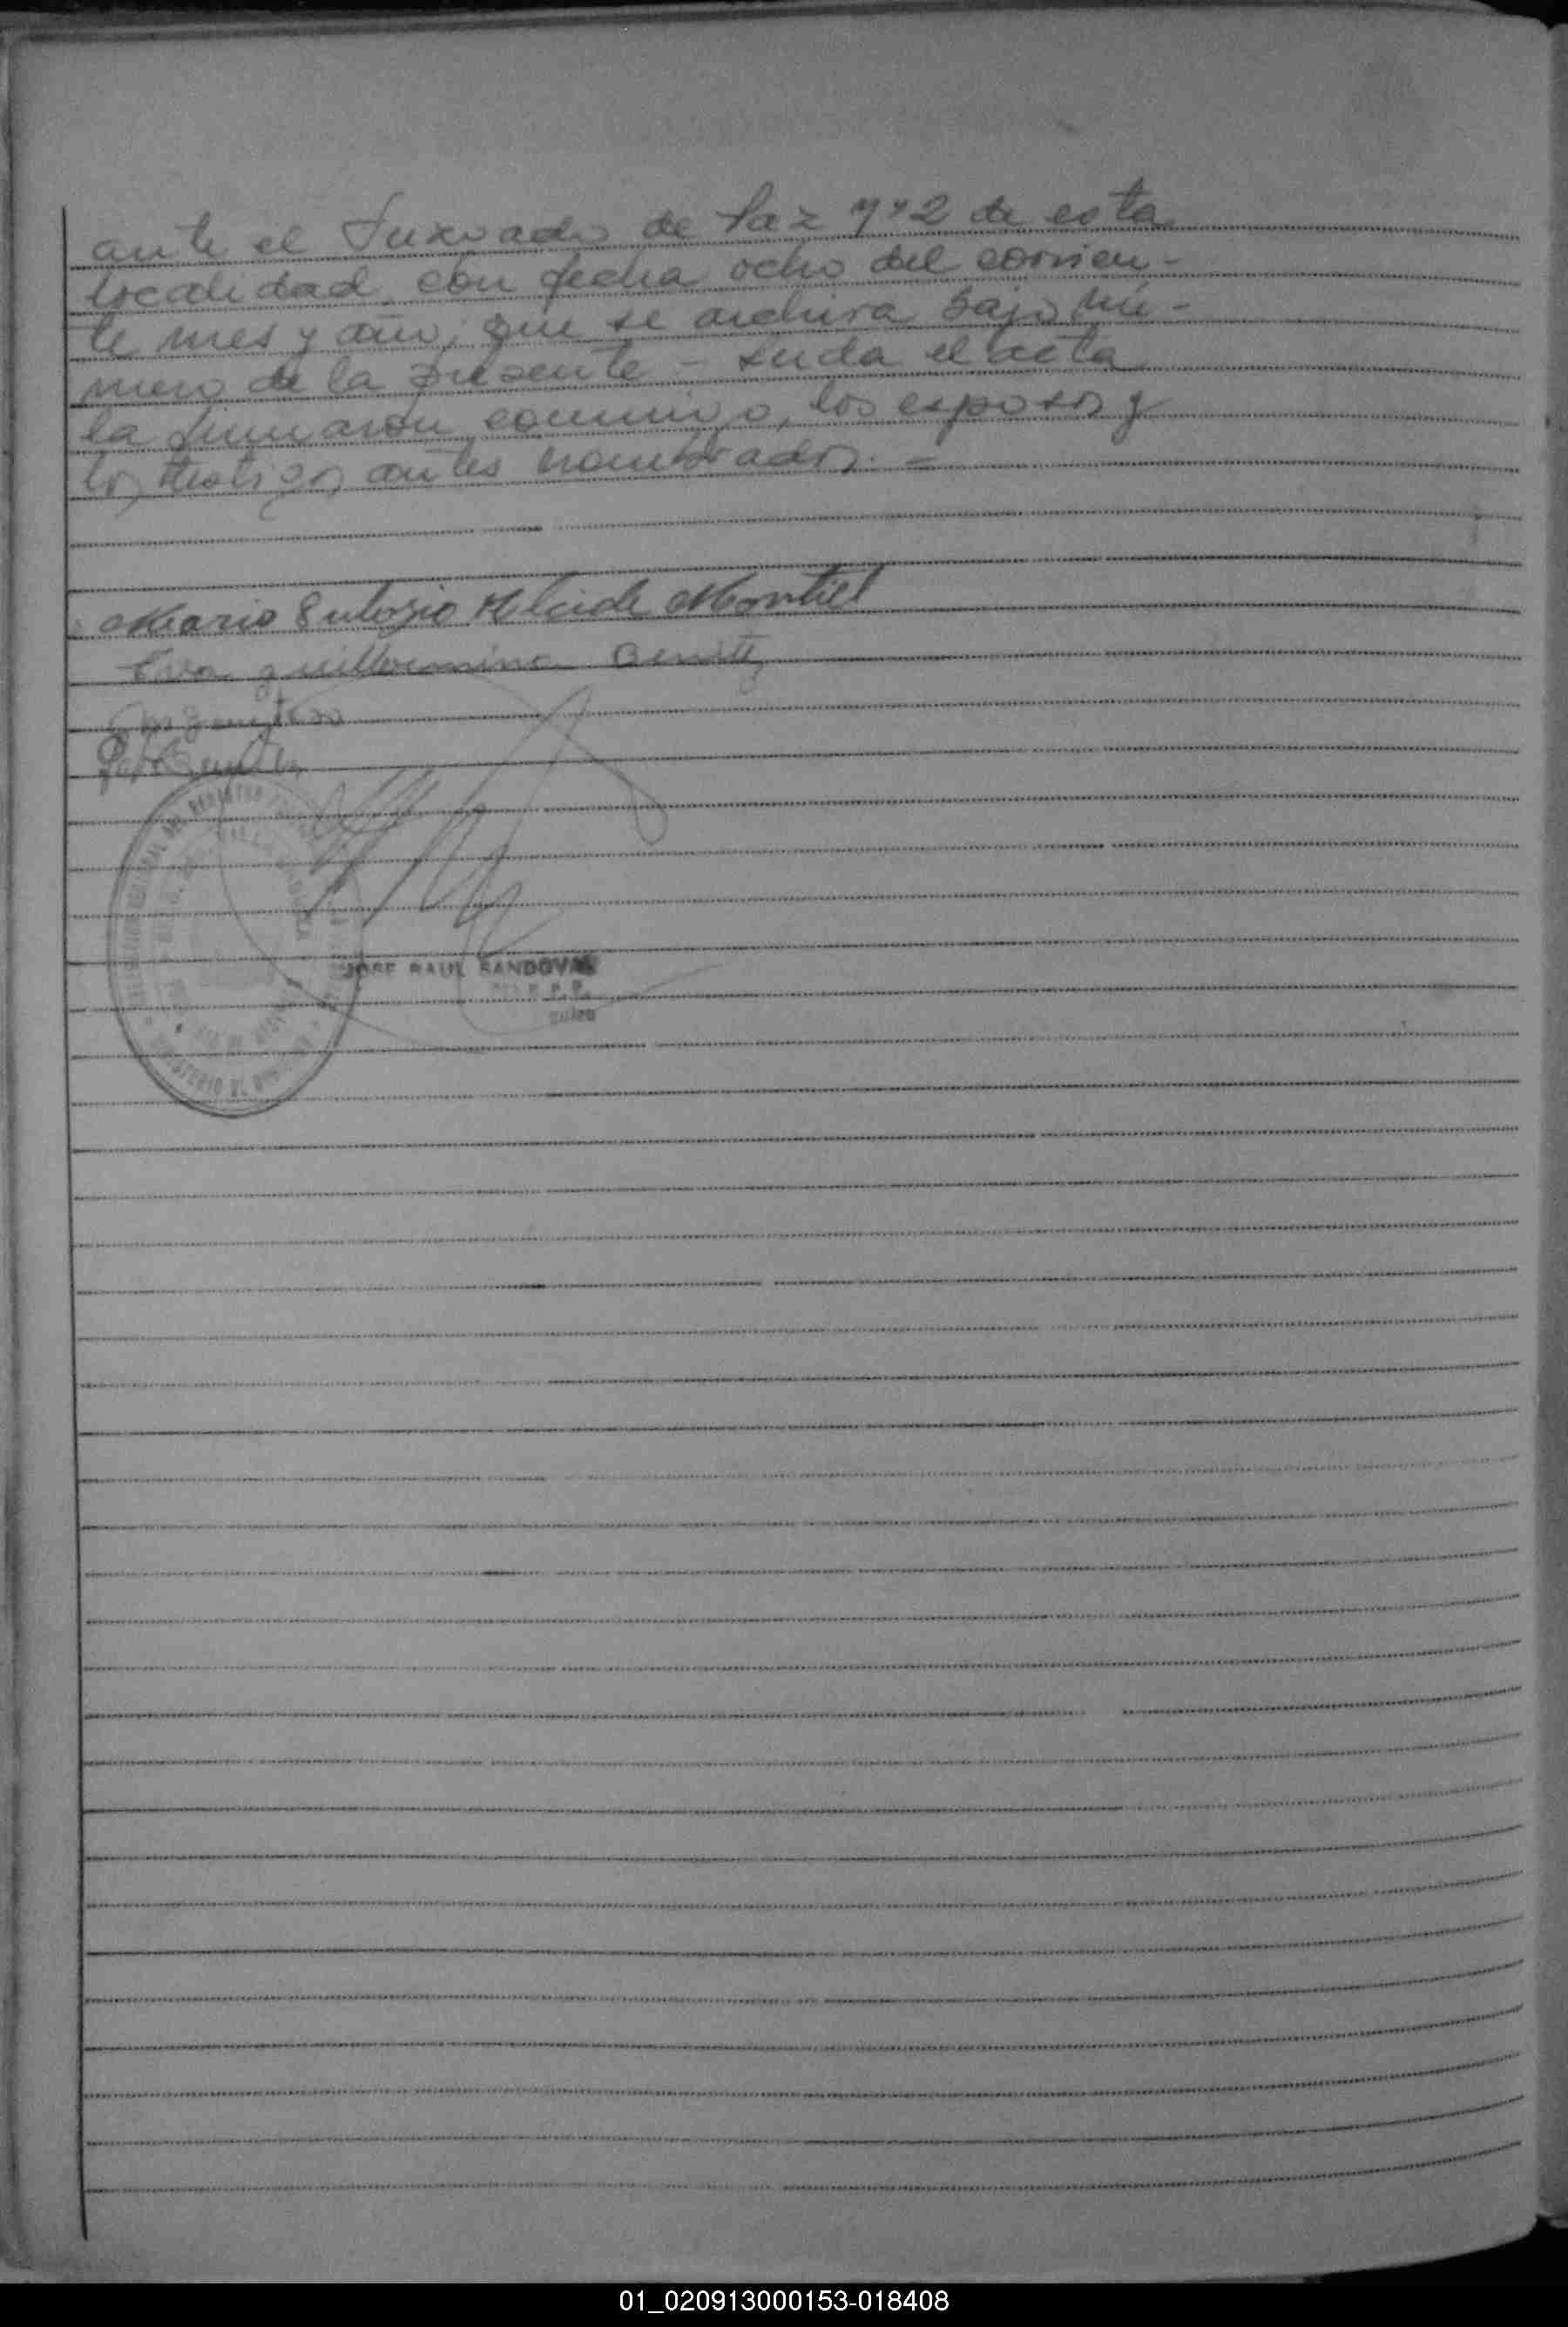 ante el Juzgado de Paz Nº 2 de esta
localidad con fecha ocho del corrien-
te mes y año, que se archiva bajo nú-
mero de la presente - Leída el acta
la firmaron conmigo, los esposos y
los testigos antes nombrados. =
Mario Eulogio Alcide Montiel
Eva guillermina Benitez
JOSE RAUL SANDOVAL